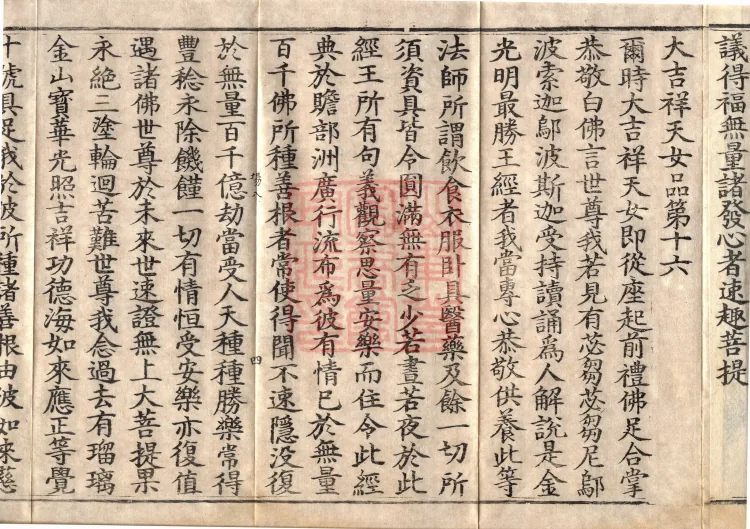 議得福無量諸發心者速趣菩提
大吉祥天女品第十六
爾時大吉祥天女即從座起前禮佛足合掌
恭敬白佛言世尊我若見有苾芻苾芻尼鄔
波索迦鄔波斯迦受持讀誦為人解說是金
光明最勝王經者我當專心恭敬供養此等
法師所謂飲食衣服臥具醫藥及餘一切所
須資具皆令圓滿無有乏少若晝若夜於此
經王所有句義觀察思量安樂而住令此經
典於贍部洲廣行流布為彼有情已於無量
百千佛所種善根者常使得聞不速隱沒復
四
於無量百千億劫當受人天種種勝樂常得
豐稔永除饑饉一切有情恒受安樂亦復值
遇諸佛世尊於未來世速證無上大菩提果
永絕三塗輪迴苦難世尊我念過去有瑠璃
金山寶華光照吉祥功德海如來應正等覺
十號具足我於彼所種諸善根由彼如來慈